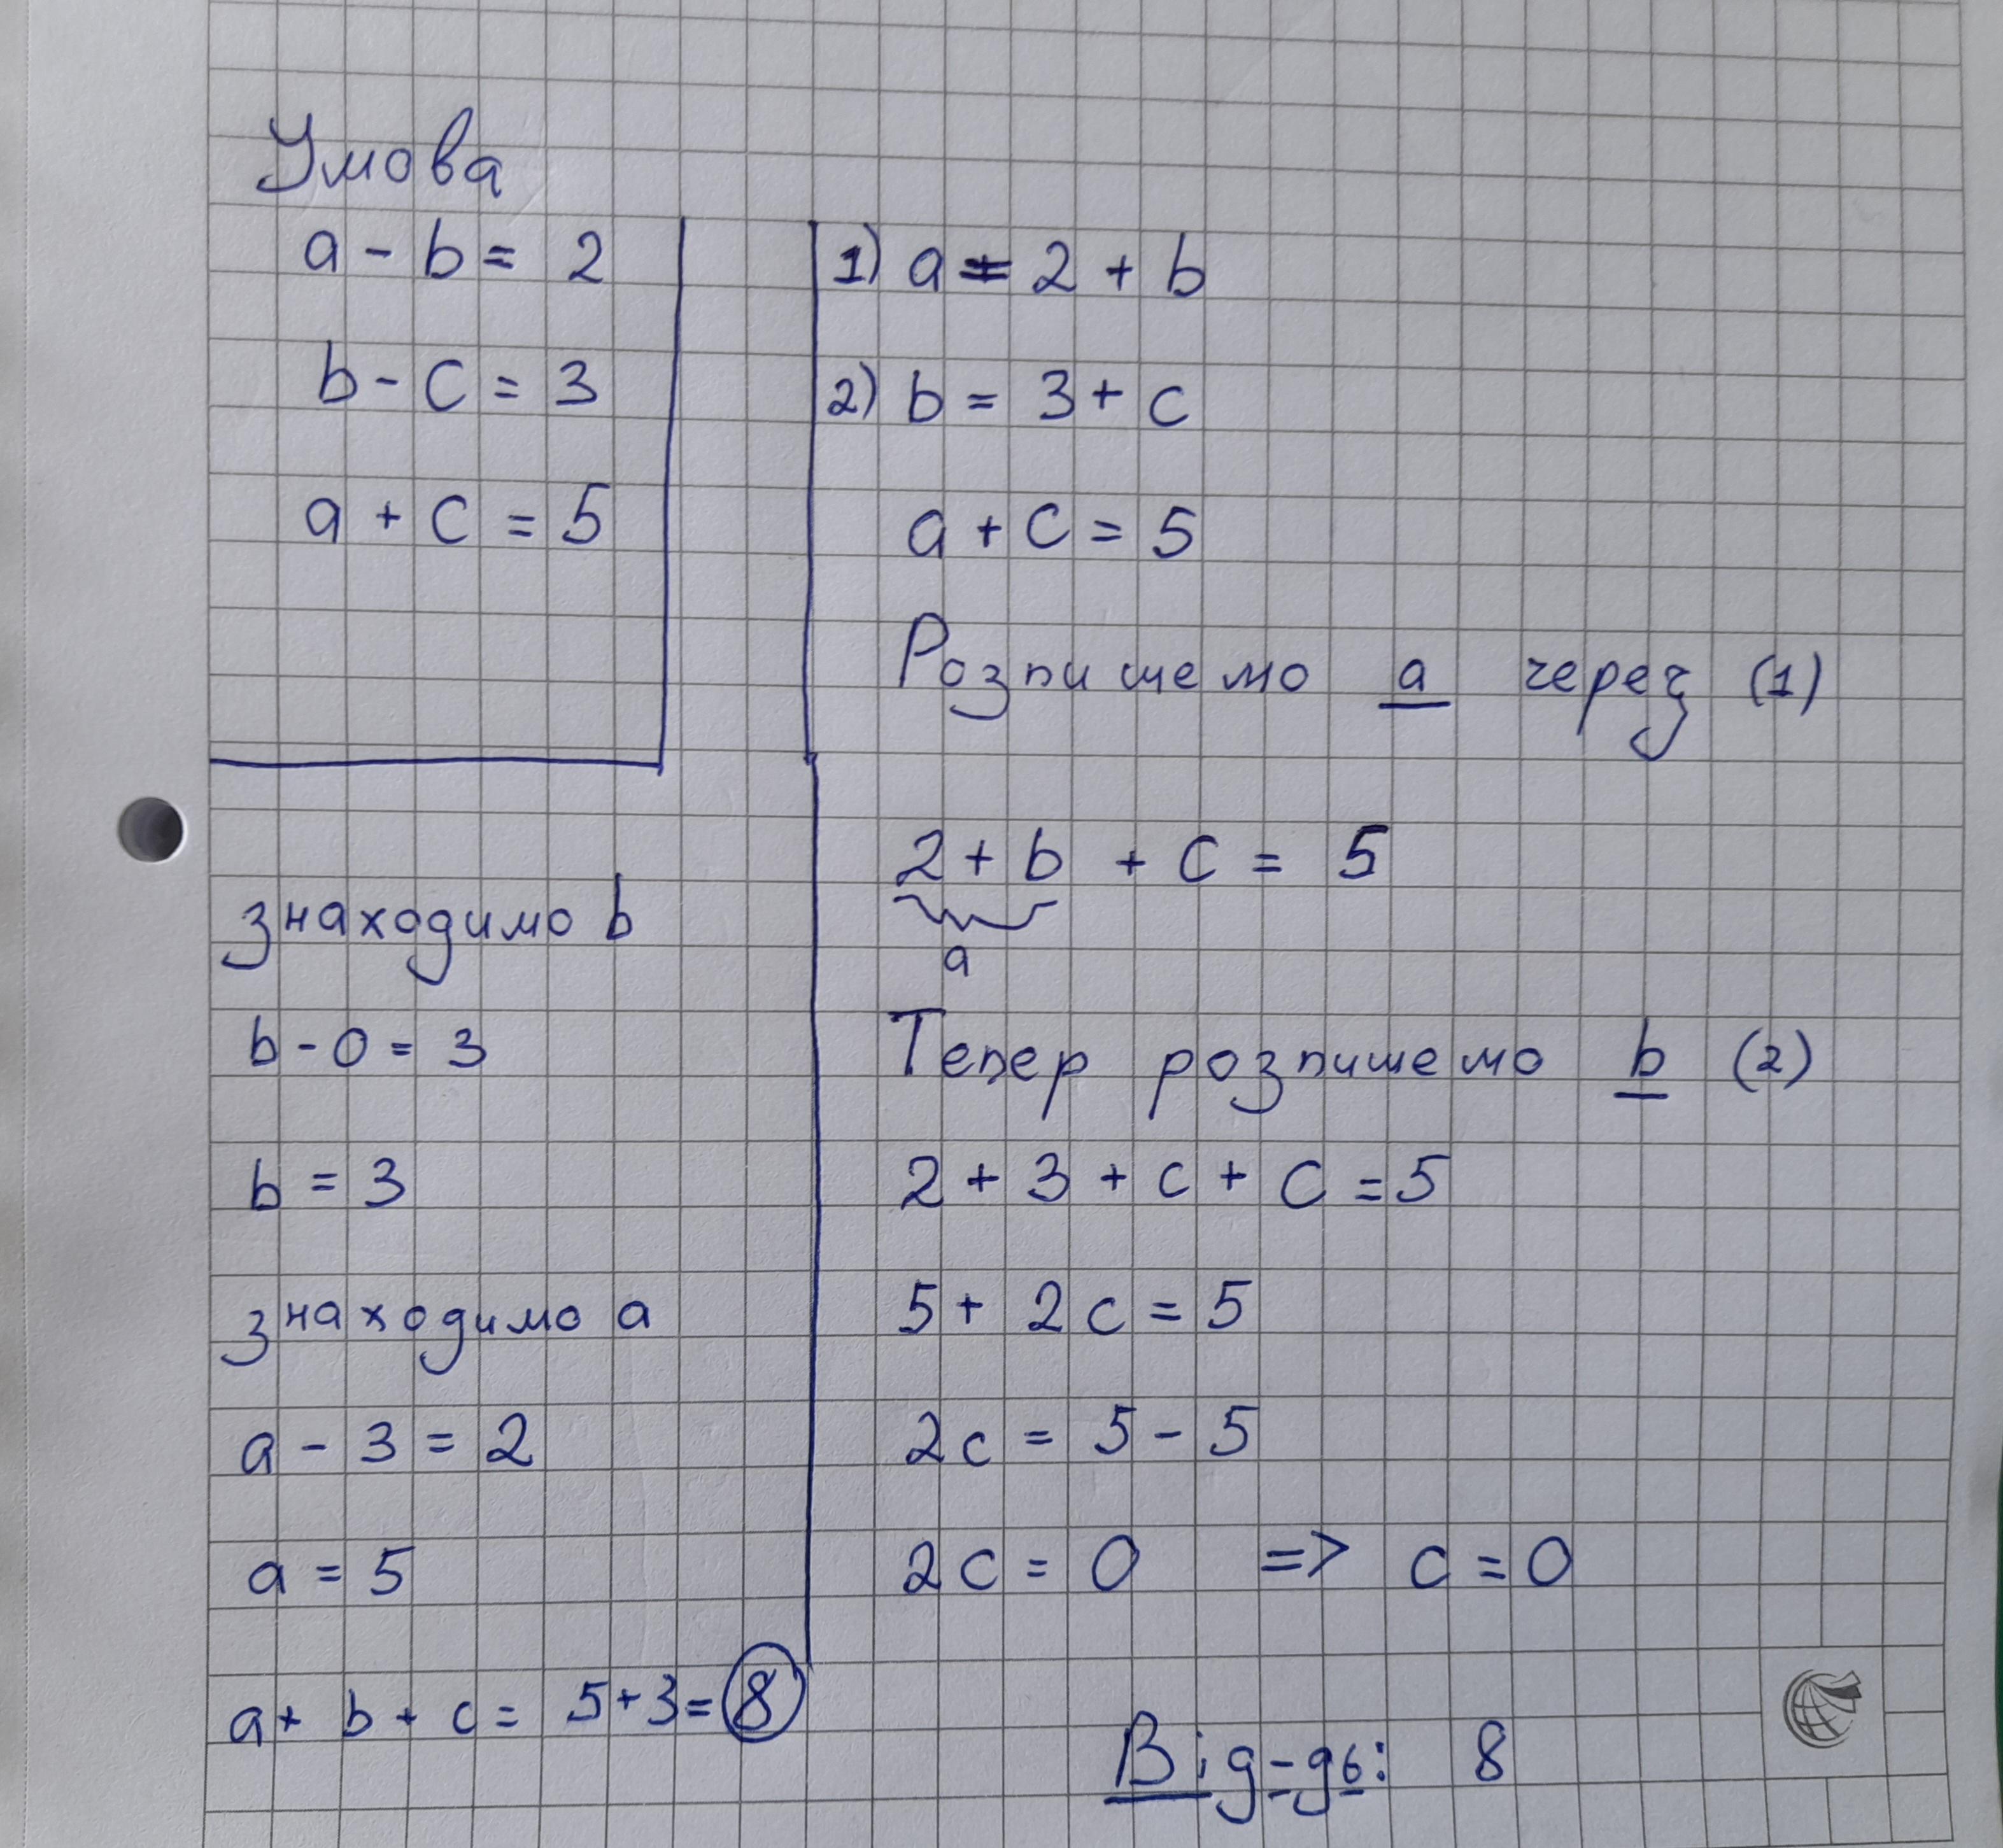 Умова
a - b = 2
b - c = 3
a + c = 5
1) a = 2 + b
2) b = 3 + c
a + c = 5
Розпишемо a через (1)
2 + b + c = 5
a
Тепер розпишемо b (2)
2 + 3 + c + c = 5
5 + 2c = 5
2c = 5 - 5
2c = 0 => c = 0
знаходимо b
b - 0 = 3
b = 3
знаходимо a
a - 3 = 2
a = 5
a + b + c = 5 + 3 = 8
Від-дь: 8